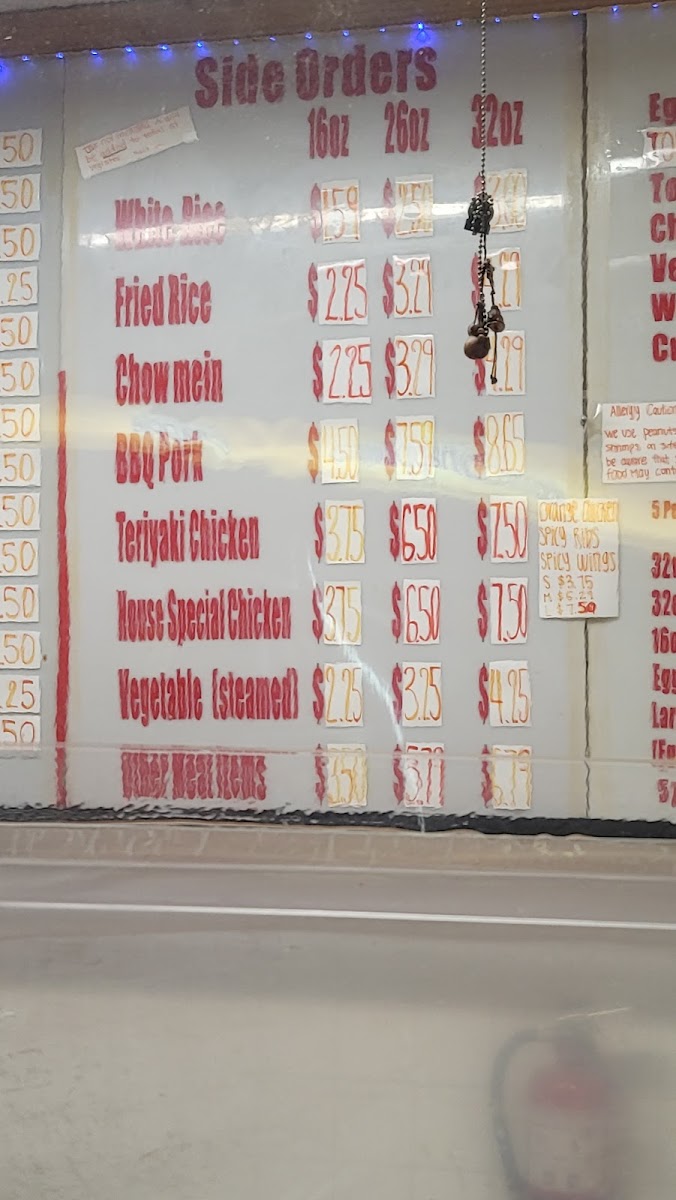 Side Orders
16oz 26oz 32oz
White Rice $1.59 $2.50
Fried Rice $2.25 $3.29 $4.29
Chow mein $2.25 $3.29 $4.29
BBQ Pork $4.50 $7.59 $8.65
Teriyaki Chicken $3.75 $6.50 $7.50
House Special Chicken $3.75 $6.50 $7.50
Vegetable (steamed) $2.25 $3.25 $4.25
Other Meat Items $3.50
Orange Chicken
Spicy Ribs
Spicy Wings
S $3.75
M $5.29
L $7.50
50
50
50
.25
50
50
50
50
50
50
50
50
25
50
Eg
TO
To
Ch
Ve
W
Cr
Allergy Caution
we use peanuts
shrimps on
be aware that
food may cont
5 P
32
32
16
Egg
Lar